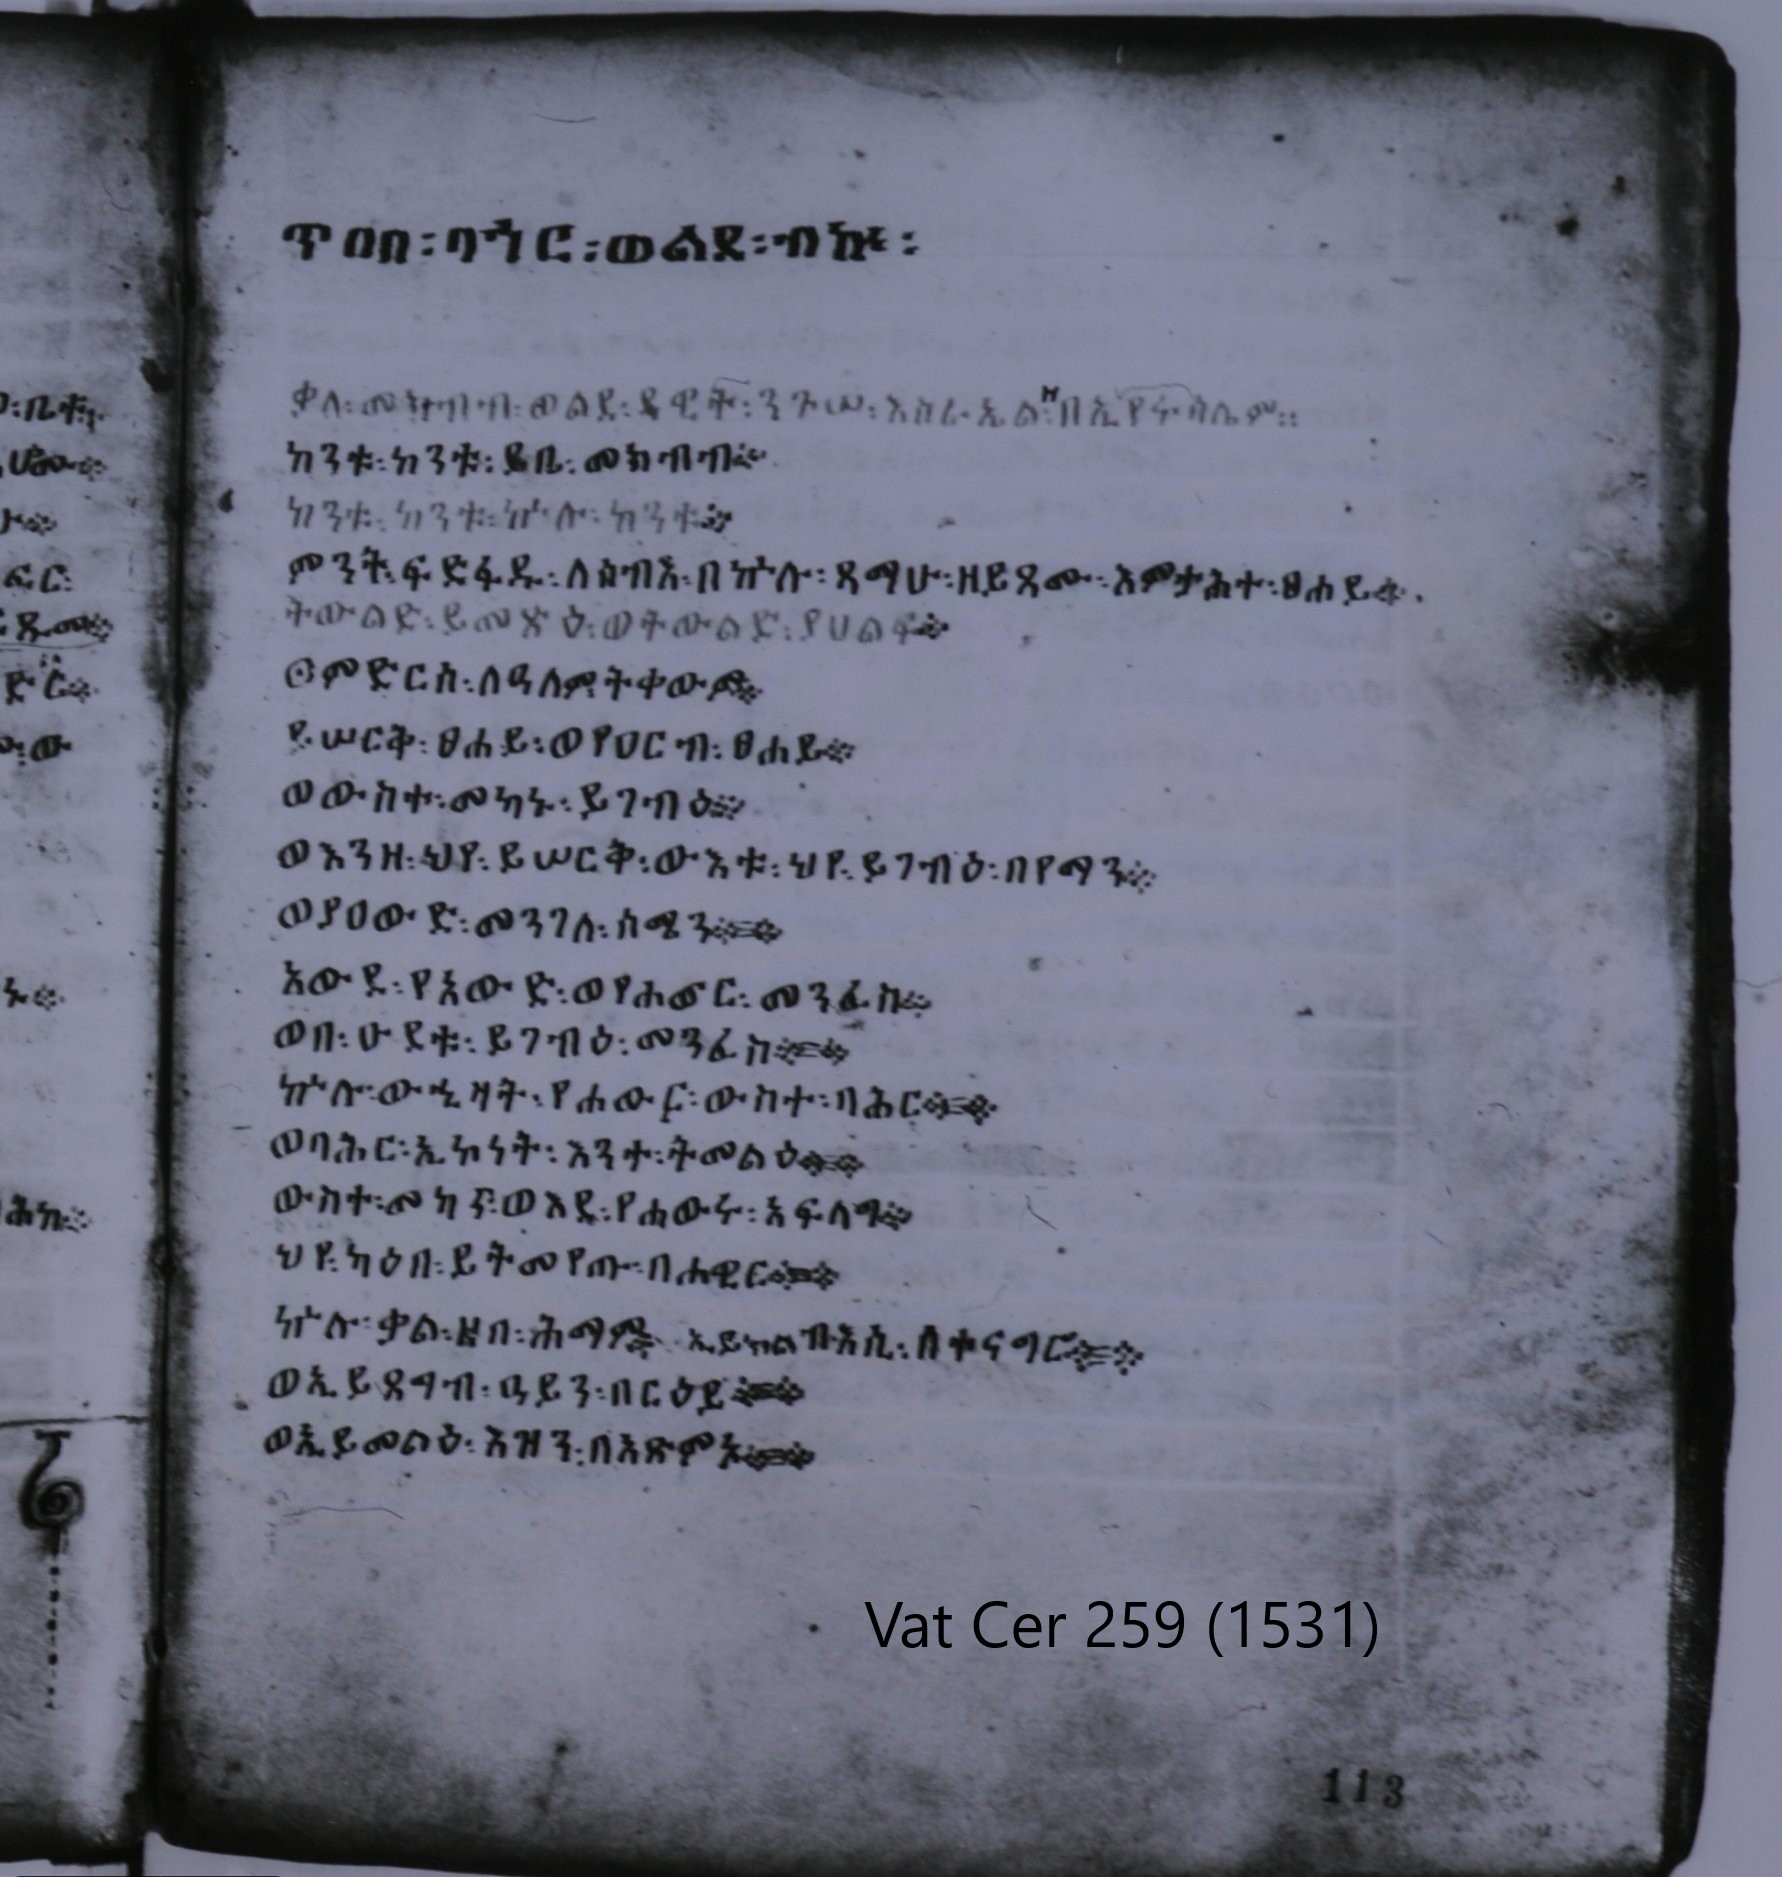 ጥዐበ፡ባኍር፡ወልደ፡
ቃለ፡መክብብ፡ወልደ፡ዳዊት፡ንጉሠ፡እስራኤል፡ዘበኢየሩሳሌም።
ከንቱ፡ከንቱ፡ይቤ፡መክብብ፨
ከንቱ፡ከንቱ፡ኵሉ፡ከንቱ፨
ምንት፡ፍድፋዱ፡ለሰብእ፡በኵሉ፡ጻማሁ፡ዘይጻሙ፡እምታሕተ፡ፀሐይ፨
ትውልድ፡ይመጽዕ፡ወትውልድ፡ያሀልፍ፨
ወምድርሰ፡ለዓለም፡ትቀውም፨
ይሠርቅ፡ፀሐይ፡ወየዐርብ፡ፀሐይ፨
ወውስተ፡መካኑ፡ይገብዕ፨
ወእንዘ፡ህየ፡ይሠርቅ፡ውእቱ፡ህየ፡ይገብዕ፡በየማን፨
ወያዐውድ፡መንገለ፡ሰሜን፨
አውደ፡የአውድ፡ወየሐውር፡መንፈስ፨
ወበ፡ዑደቱ፡ይገብዕ፡መንፈስ፨
ኵሉ፡ውኂዛት፡የሐውር፡ውስተ፡ባሕር፨
ወባሕር፡ኢኮነት፡እንተ፡ትመልዕ፨
ውስተ፡መካን፡ወእደ፡የሐውሩ፡አፍላግ፨
ህየ፡ካዕበ፡ይትመየጡ፡በሐዊር፨
ኵሉ፡ቃል፡ዘበ፡ሕማም፨ ኢይክልብእሲ፡ለተናግሮ፨
ወኢይጸግብ፡ዓይን፡በርዕይ፨
ወኢይመልዕ፡እዝን፡በአጽምኦ፨
Vat Cer 259 (1531)
113